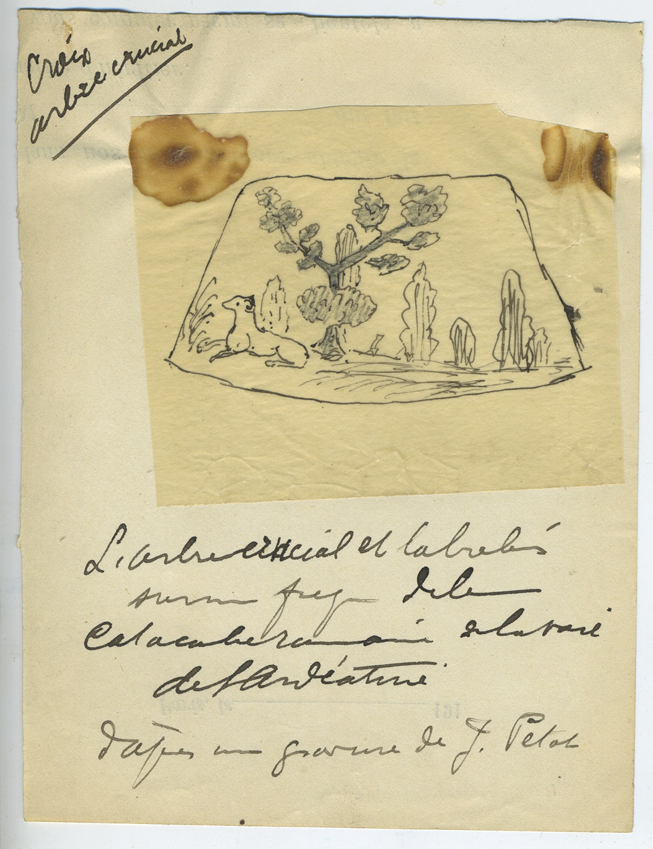 Croix
arbre crucial
L'arbre crucial et la brebis
sur un
Catacombe romaine de la voie
de l'Ardéatine
d'après un gravure de J. Petot